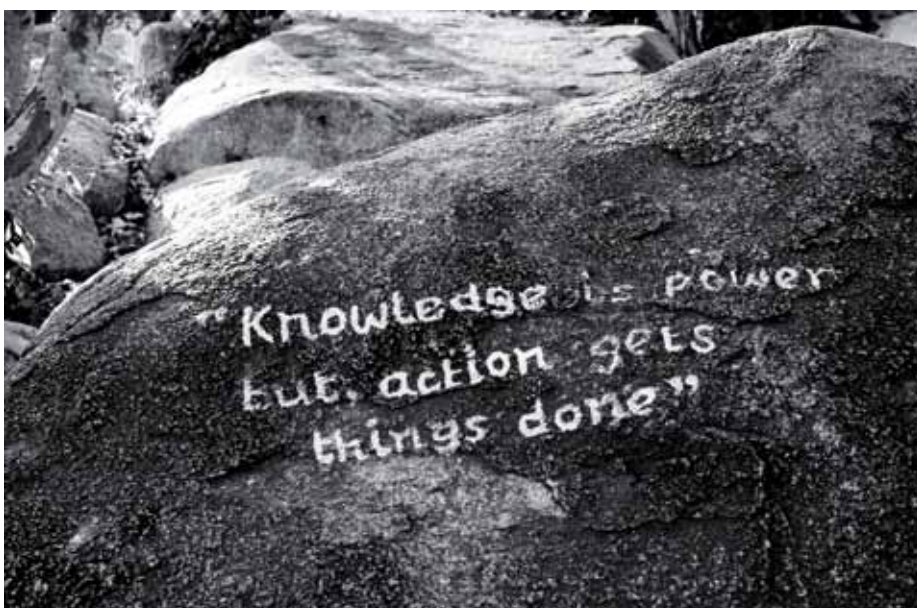 "Knowledge is power
but, action gets
things done"